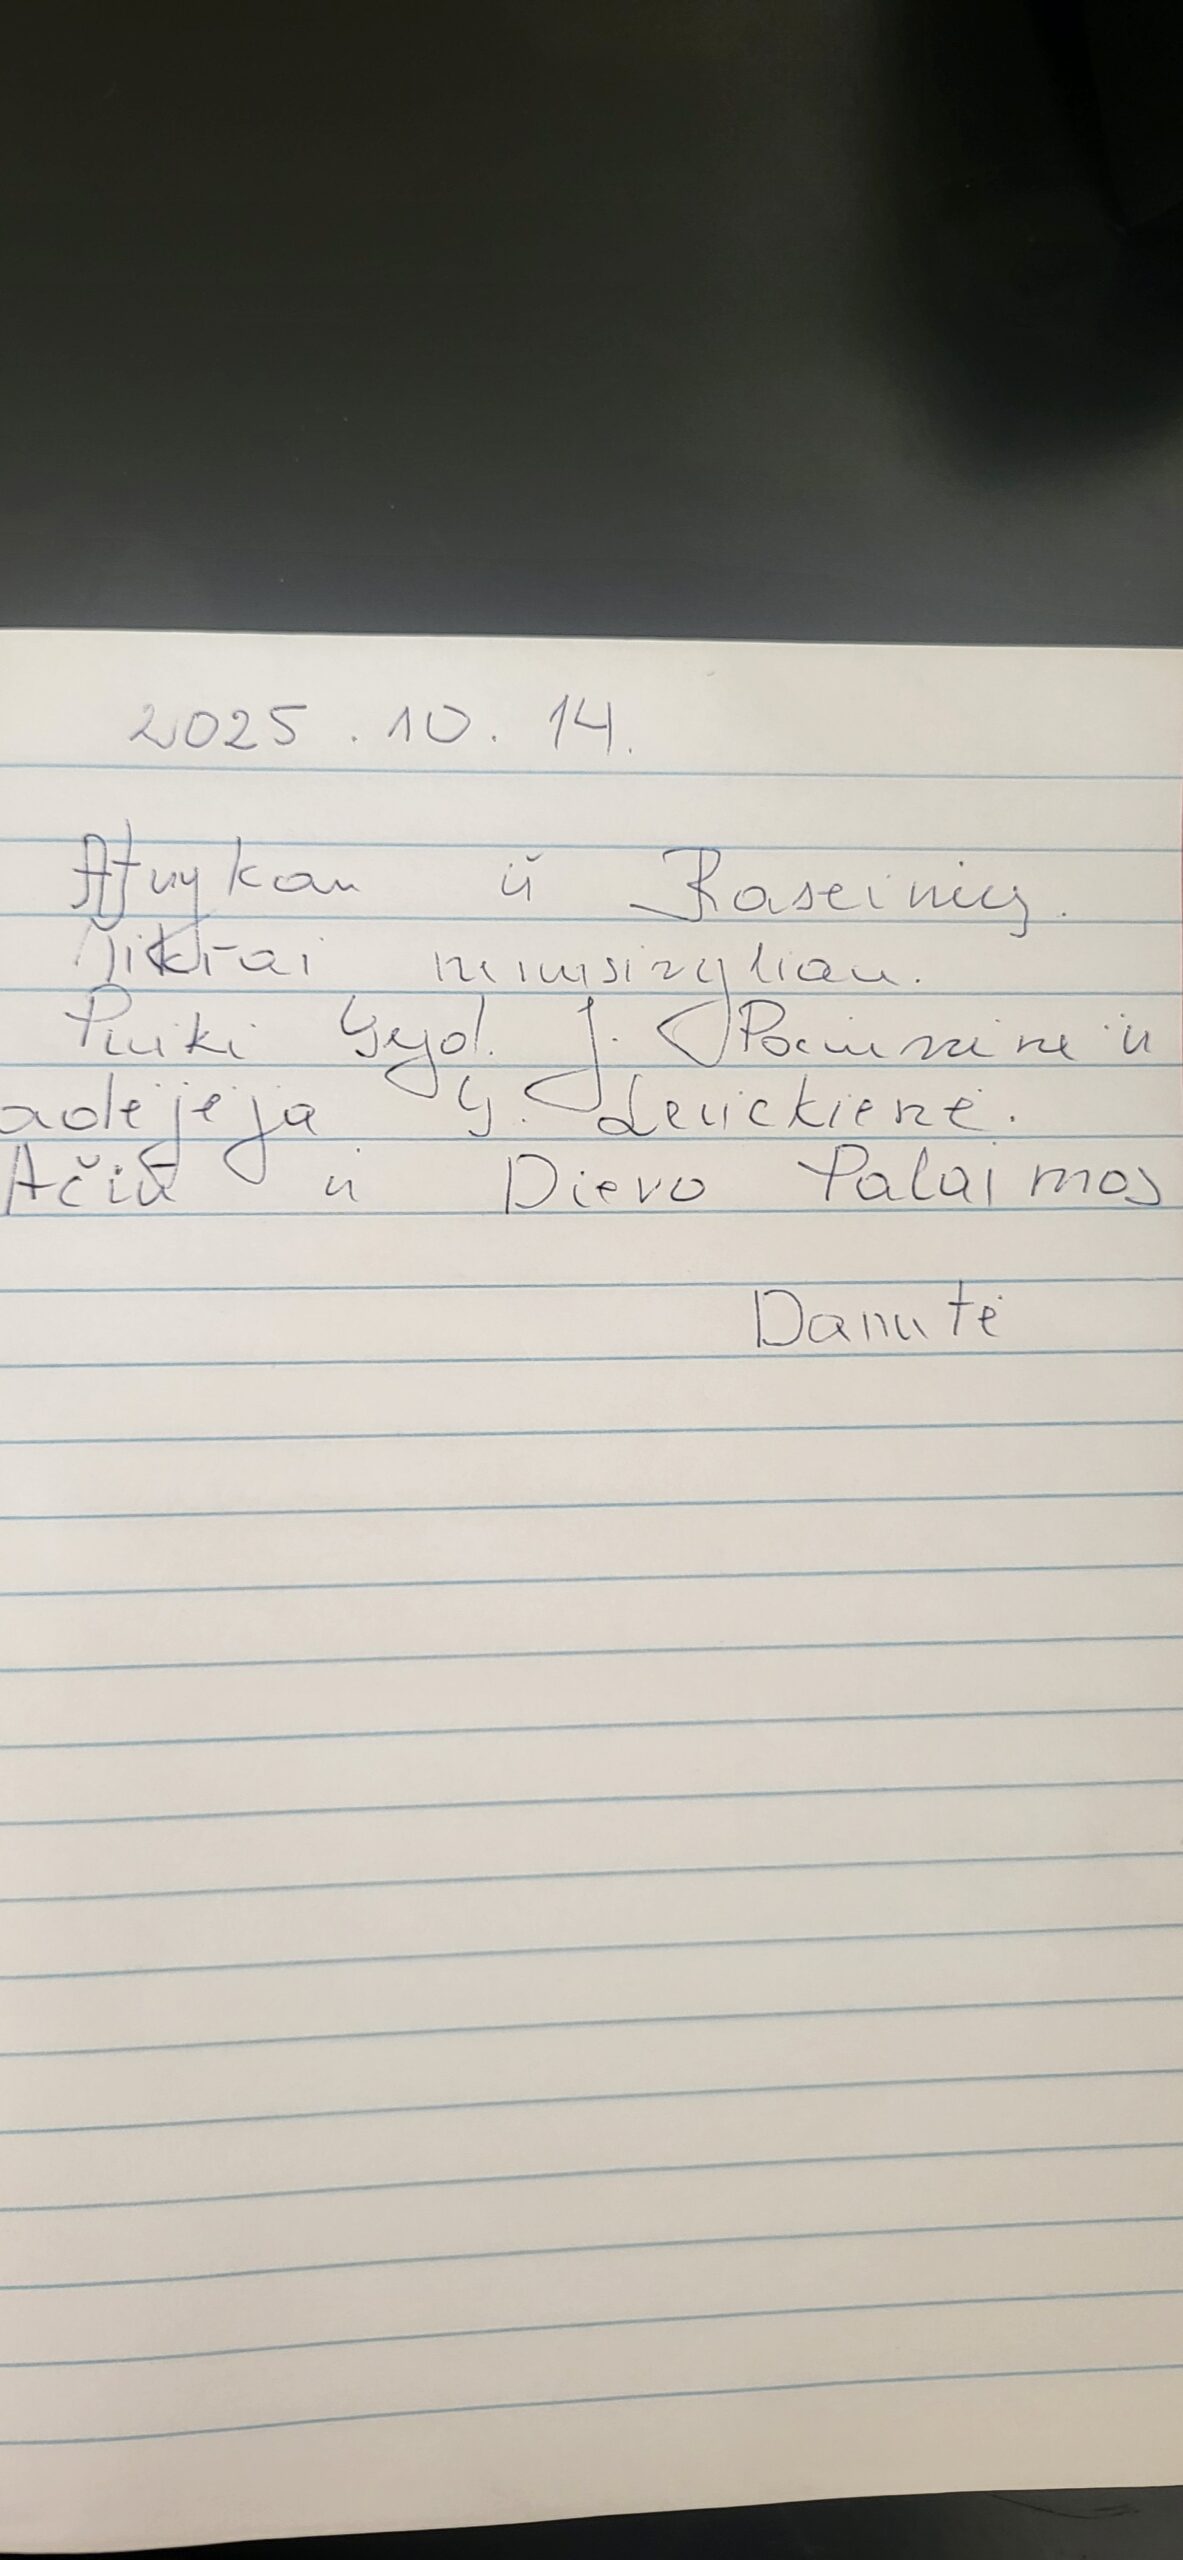 2025.10.14.
Atvykau iš Raseinių.
Tikrai nenusivyliau.
Puiki Gyd. J.
adėjėja G. Levickienė.
Ačiū ir Dievo Palaimos
Danutė